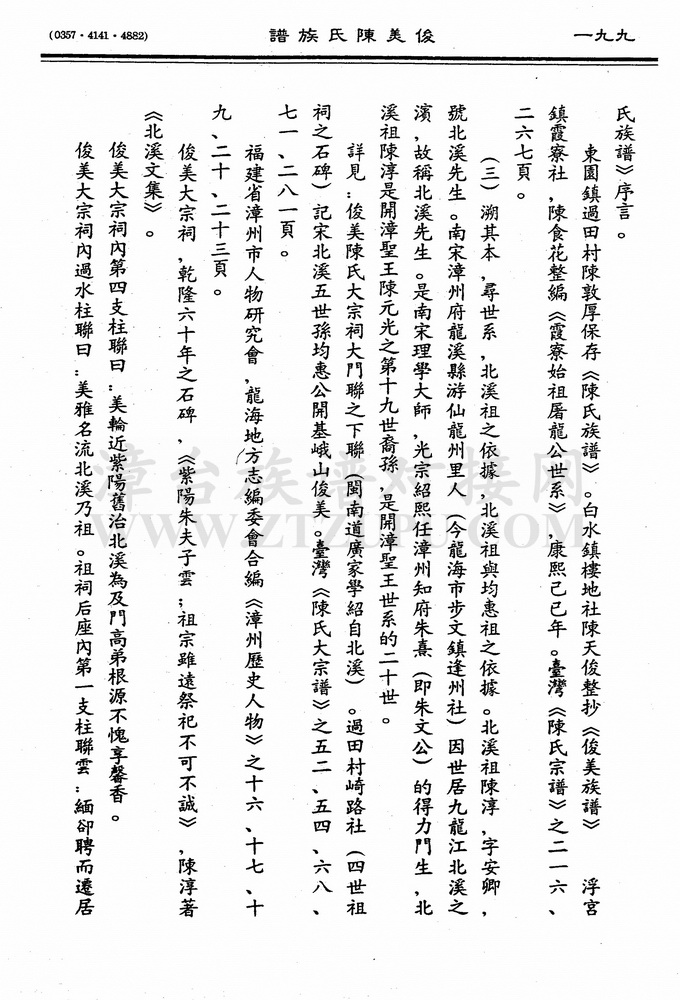 (0357·4141·4882)
譜族氏陳美俊
一九九
氏族譜》序言。
東園鎮過田村陳敦厚保存《陳氏族譜》。白水鎮樓地社陳天俊整抄《俊美族譜》　浮宮
鎮霞寮社，陳食花整編《霞寮始祖屠龍公世系》，康熙己巳年。臺灣《陳氏宗譜》之二一六、
二六七頁。
（三）溯其本，尋世系，北溪祖之依據，北溪祖與均惠祖之依據。北溪祖陳淳，字安卿，
號北溪先生。南宋漳州府龍溪縣游仙龍州里人（今龍海市步文鎮逢州社）因世居九龍江北溪之
濱，故稱北溪先生。是南宋理學大師，光宗紹熙任漳州知府朱熹（即朱文公）的得力門生，北
溪祖陳淳是開漳聖王陳元光之第十九世裔孫，是開漳聖王世系的二十世。
詳見：俊美陳氏大宗祠大門聯之下聯（閩南道廣家學紹自北溪）。過田村崎路社（四世祖
祠之石碑）記宋北溪五世孫均惠公開基峨山俊美。臺灣《陳氏大宗譜》之五二、五四、六八、
七一、二八一頁。
福建省漳州市人物研究會，龍海地方志編委會合編《漳州歷史人物》之十六、十七、十
九、二十、二十三頁。
俊美大宗祠，乾隆六十年之石碑，《紫陽朱夫子雲；祖宗雖遠祭祀不可不誠》，陳淳著
《北溪文集》。
俊美大宗祠內第四支柱聯曰：美輪近紫陽舊治北溪為及門高弟根源不愧享馨香。
俊美大宗祠內過水柱聯曰：美雅名流北溪乃祖。祖祠后座內第一支柱聯雲：緬卻聘而遷居
漳台族譜对接网
WWW.ZTZUPU.COM